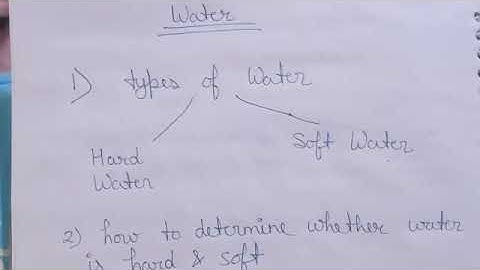 Water
1) types of Water
Hard Water
Soft Water
2) how to determine whether water
is hard & soft